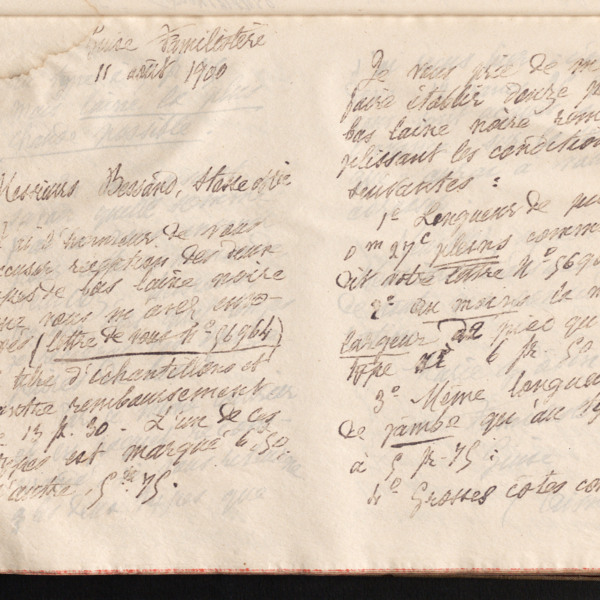 Guise Familistère
11 août 1900
Messieurs Bessand, Stasse & Cie
J'ai l'honneur de vous
accuser réception des deux
types de bas laine noire
que vous m'avez envo-
yés (lettre de vous N° 56964)
à titre d'échantillons et
contre remboursement
de 13 fr. 30. L'un de ces
types est marqué 6 fr 50.
l'autre, 5 fr 75.
Je vous prie de m
faire établir douze p
bas laine noire rem
plissant les conditions
suivantes :
1° Longueur de pi
0 m 27 c pleins comm
dit votre lettre N° 5696
2° Au moins la m
largeur de pied qu
type 6 fr. 50
3° Même longueu
de jambe qu'au ty
à 5 fr 75 :
4° Grosses côtes co